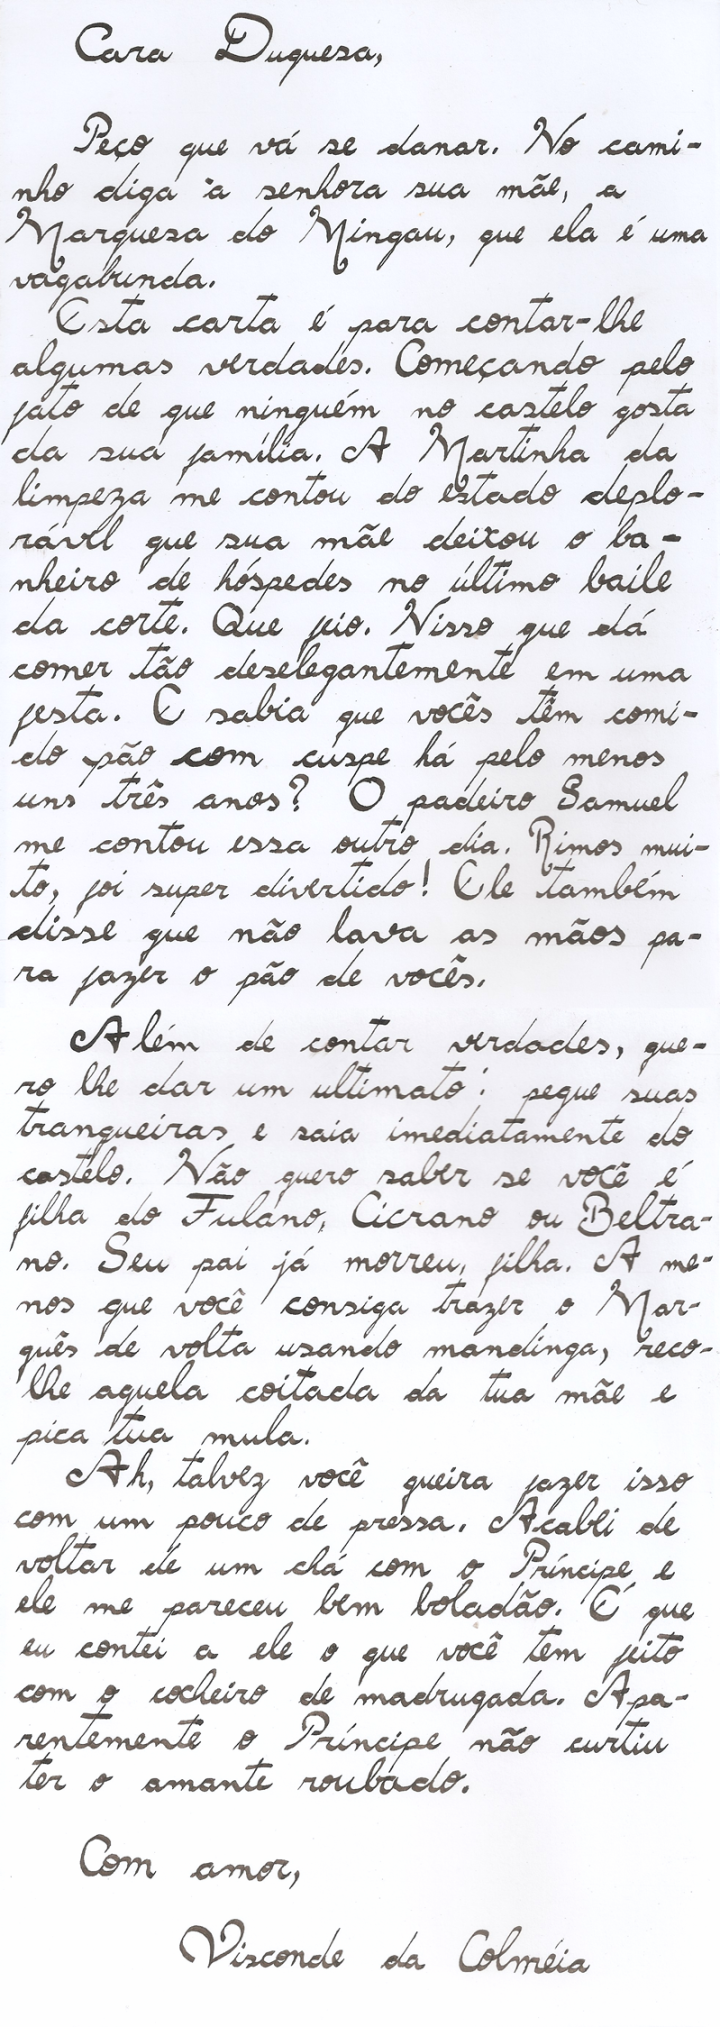 Cara Duquesa,
Peço que vá se danar. No cami-
nho diga à senhora sua mãe, a
Marquesa do Mingau, que ela é uma
vagabunda.
Esta carta é para contar-lhe
algumas verdades. Começando pelo
fato de que ninguém no castelo gosta
da sua família. A Martinha da
limpeza me contou do estado deplo-
rável que sua mãe deixou o ba-
nheiro de hóspedes no último baile
da corte. Que feio. Nisso que dá
comer tão deselegantemente em uma
festa. E sabia que vocês têm comi-
do pão com cuspe há pelo menos
uns três anos? O padeiro Samuel
me contou essa outro dia. Rimos mui-
to, foi super divertido! Ele também
disse que não lava as mãos pa-
ra fazer o pão de vocês.
Além de contar verdades, que-
ro lhe dar um ultimato: pegue suas
tranqueiras e saia imediatamente do
castelo. Não quero saber se você é
filha do Fulano, Cicrano ou Beltra-
no. Seu pai já morreu, filha. A me-
nos que você consiga trazer o Mar-
quês de volta usando mandinga, reco-
lhe aquela coitada da tua mãe e
pica tua mula.
Ah, talvez você queira fazer isso
com um pouco de pressa. Acabei de
voltar de um chá com o Príncipe e
ele me pareceu bem boladão. É que
eu contei a ele o que você tem feito
com o cocheiro de madrugada. Apa-
rentemente o Príncipe não curtiu
ter o amante roubado.
Com amor,
Visconde da Colméia